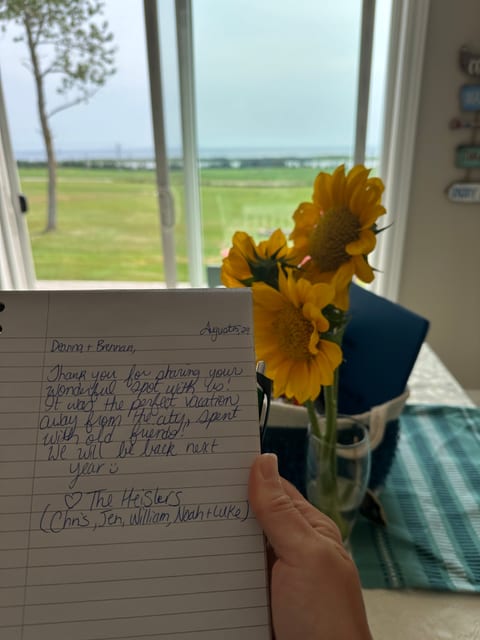 August 5, 24
Deanna + Brennan,
Thank you for sharing your
wonderful spot with us!
It was the perfect vacation
away from the city, spent
with old friends!
We will be back next
year
♡ The Heislers
(Chris, Jen, William, Noah + Luke)